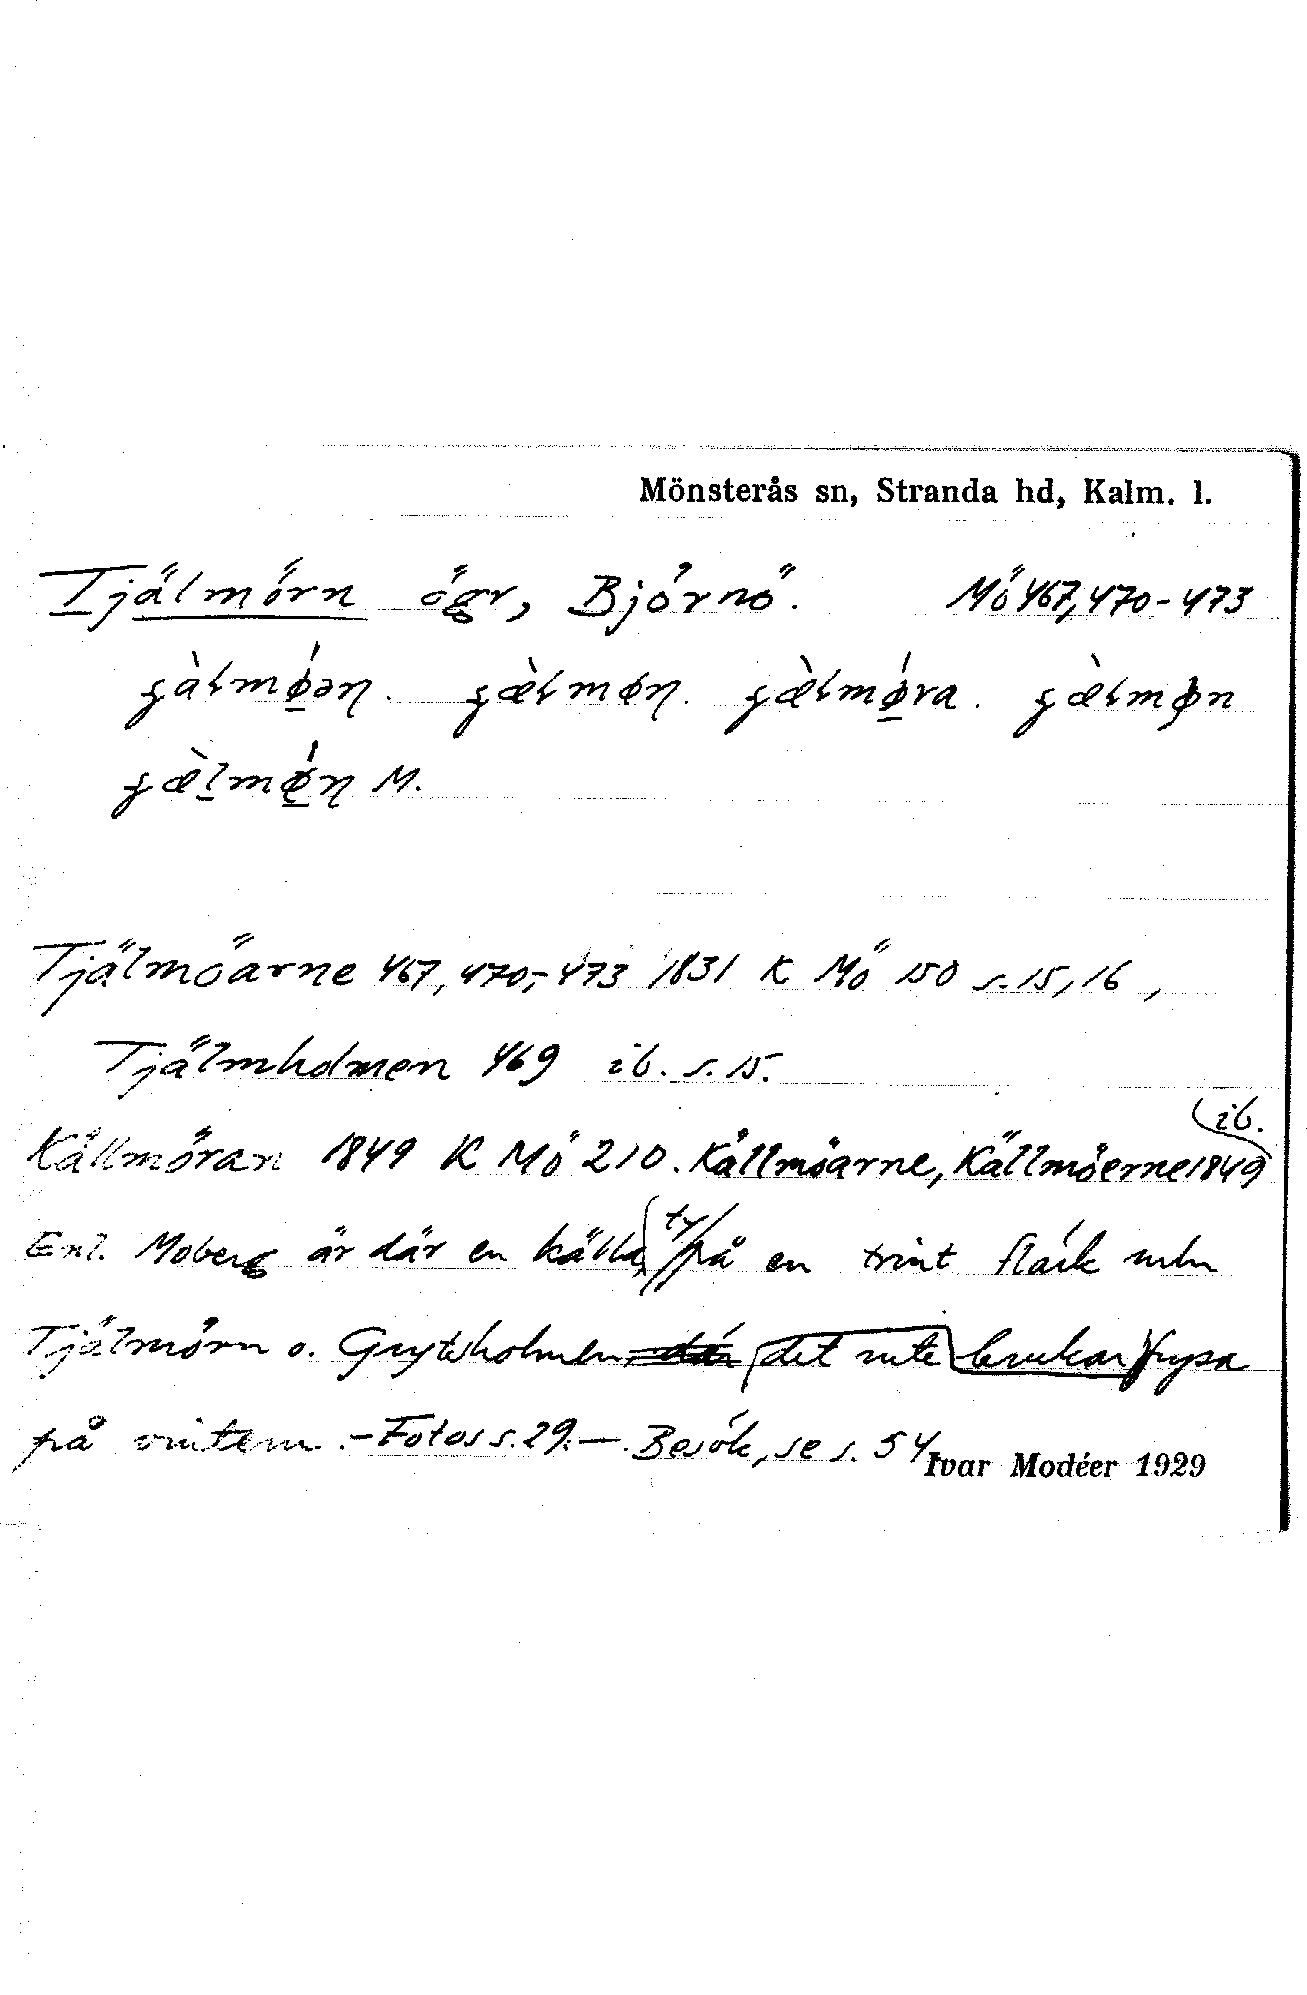 Mönsterås sn, Stranda hd, Kalm. l.
Tjälmörn ögr, Björnö. Mö 467, 470-473
M.
Tjälmöarne 467, 470,-473 1831 K Mö 150 s. 15, 16,
Tjälmholmen 469 ib. s. 15.
ib.
Källmöran 1849 K Mö 210. Källmöarne, Källmöerne 1849
Enl. Moberg är där en källa, ty på en trint fläck mln
Tjälmörn o. Grytsholmen där det inte brukar frysa
på vintern. - Fotos s. 29. - Besök, se s. 54
Ivar Modéer 1929